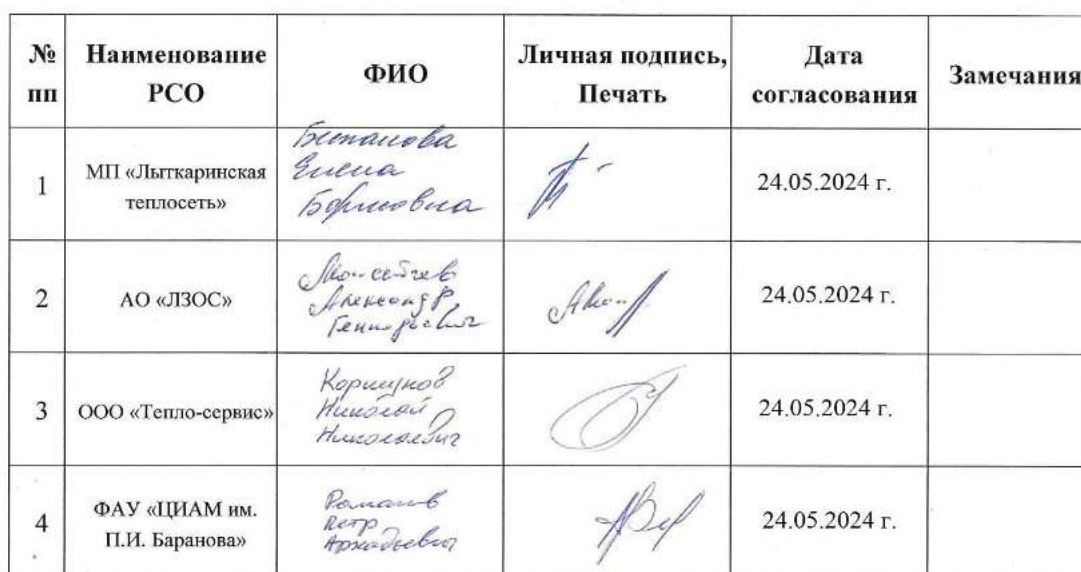 № пп
Наименование РСО
ФИО
Личная подпись, Печать
Дата согласования
Замечания
1
МП «Лыткаринская
теплосеть»
Елена
Борисовна
24.05.2024 г.
2
АО «ЛЗОС»
Александр
Геннадьевич
24.05.2024 г.
3
ООО «Тепло-сервис»
Коршунов
Николай
Николаевич
24.05.2024 г.
4
ФАУ «ЦИАМ им.
П.И. Баранова»
Петр
Аркадьевич
24.05.2024 г.